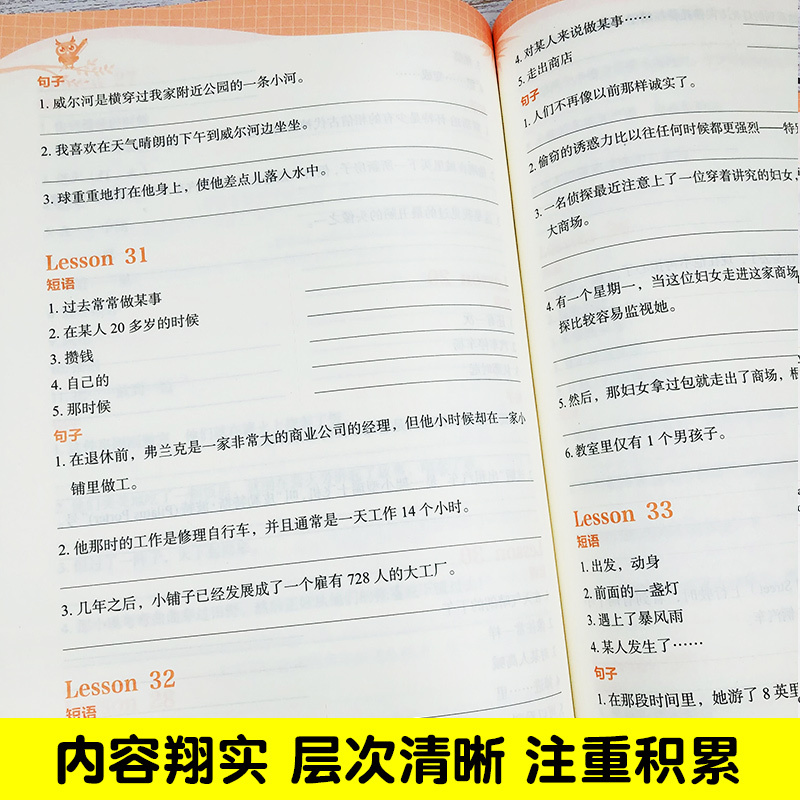 句子
1. 威尔河是横穿过我家附近公园的一条小河。
2. 我喜欢在天气晴朗的下午到威尔河边坐坐。
3. 球重重地打在他身上，使他差点儿落入水中。
Lesson 31
短语
1. 过去常常做某事
2. 在某人 20 多岁的时候
3. 攒钱
4. 自己的
5. 那时候
句子
1. 在退休前，弗兰克是一家非常大的商业公司的经理，但他小时候却在一家小
铺里做工。
2. 他那时的工作是修理自行车，并且通常是一天工作 14 个小时。
3. 几年之后，小铺子已经发展成了一个雇有 728 人的大工厂。
Lesson 32
短语
4. 对某人来说做某事……
5. 走出商店
句子
1. 人们不再像以前那样诚实了。
2. 偷窃的诱惑力比以往任何时候都更强烈——特别
3. 一名侦探最近注意上了一位穿着讲究的妇女，
大商场。
4. 有一个星期一，当这位妇女走进这家商场
探比较容易监视她。
5. 然后，那妇女拿过包就走出了商场，
6. 教室里仅有 1 个男孩子。
Lesson 33
短语
1. 出发，动身
2. 前面的一盏灯
3. 遇上了暴风雨
4. 某人发生了……
句子
1. 在那段时间里，她游了 8 英里
内容翔实 层次清晰 注重积累